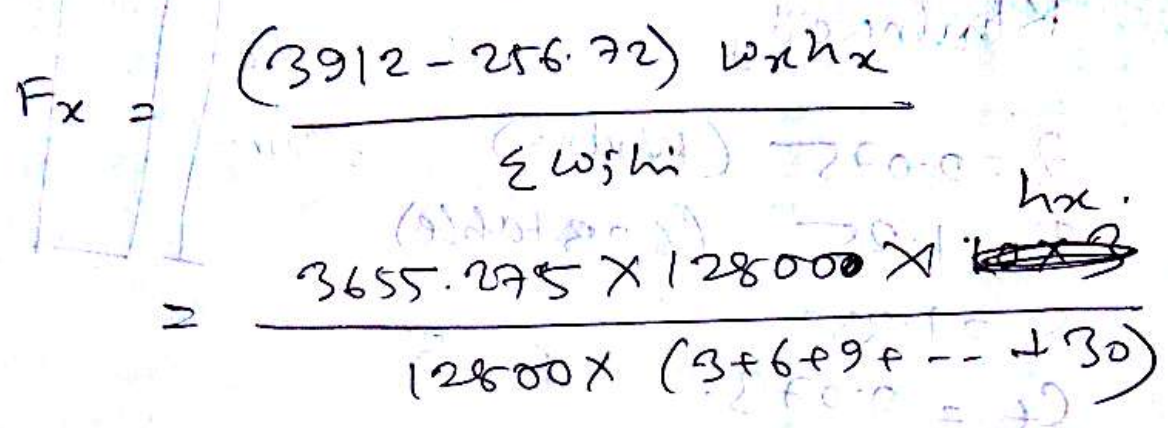 Fx = (3912 - 256.72) wxhx
Σ wihi
hx.
= 3655.275 × 128000 ×
12800 × (3+6+9+ -- + 30)